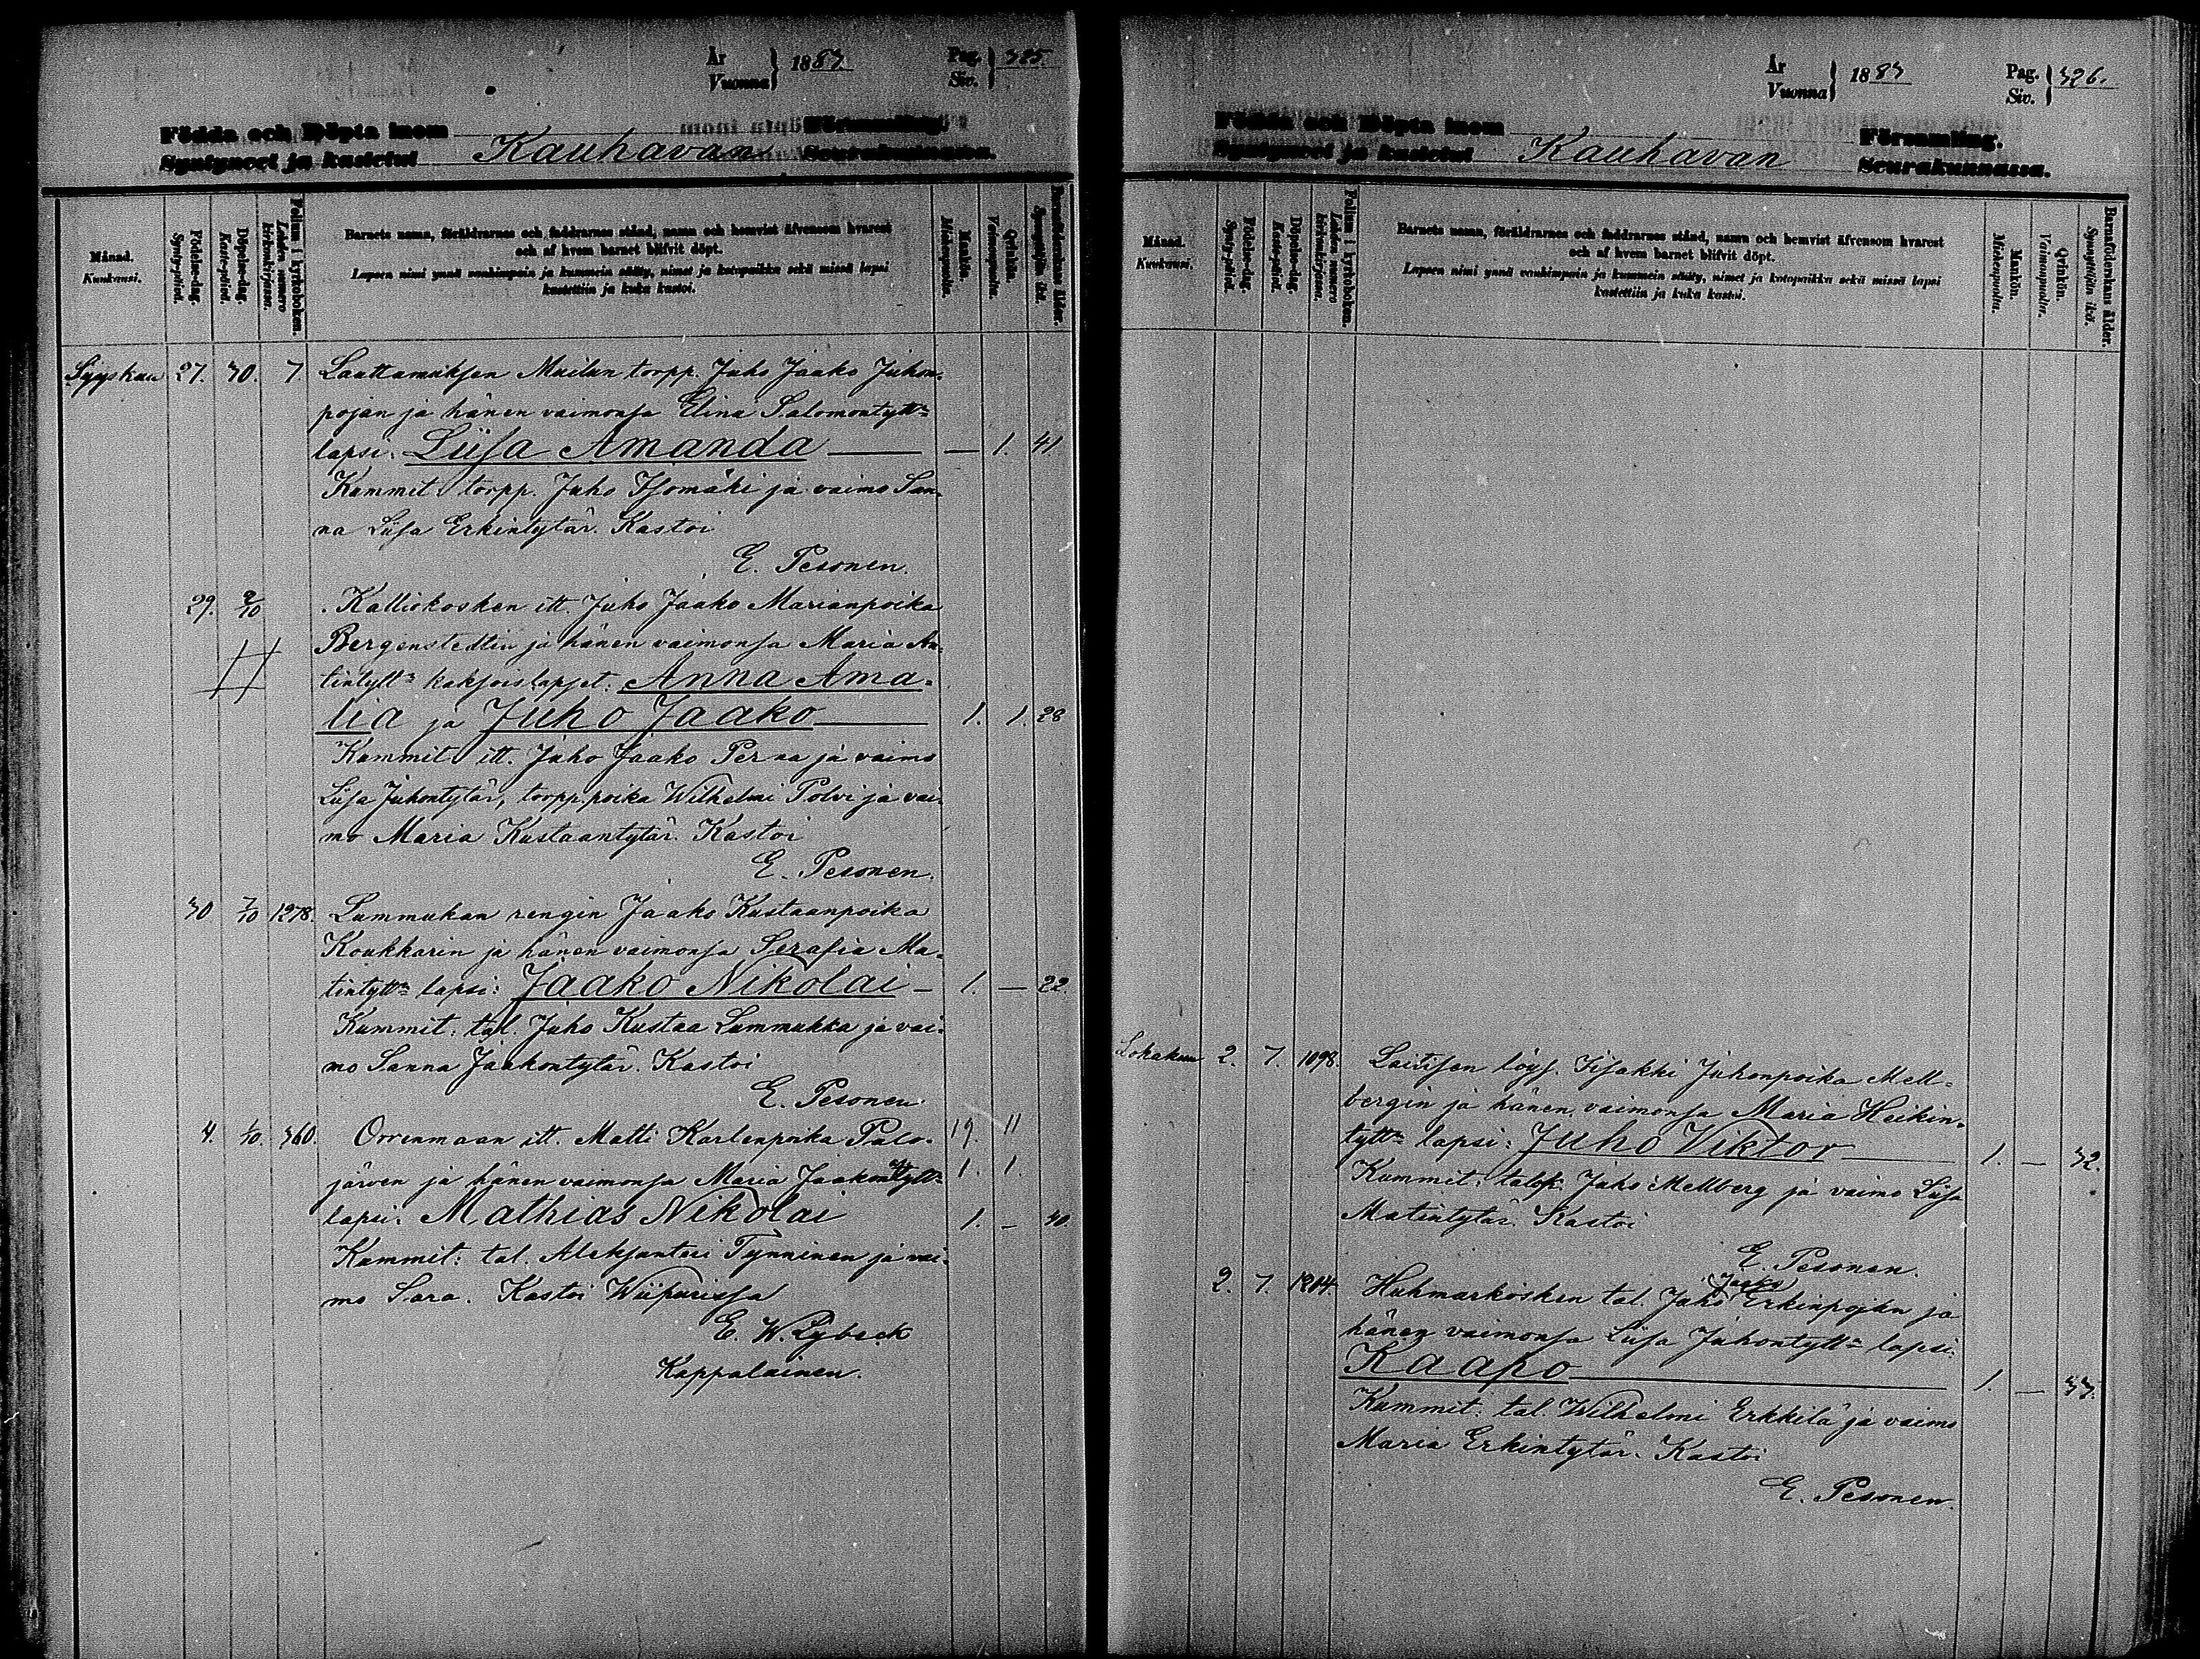 År
Vuonna } 1883
Pag.
Siv. } 325.
Födda och Döpta inom Församling.
Syntyneet ja kastetut Kauhavan Seurakunnassa.
Månad.
Kuukausi.
Födelse-dag.
Synty-päivä.
Döpelse-dag.
Kaste-päivä.
Folium i kyrkoboken.
Lehden numero kirkonkirjassa.
Barnets namn, föräldrarnes och faddrarnes stånd, namn och hemvist äfvensom hvarest
och af hvem barnet blifvit döpt.
Lapsen nimi ynnä vanhimpain ja kummein sääty, nimet ja kotopaikka sekä missä lapsi
kastettiin ja kuka kastoi.
Mankön.
Miehenpuolia.
Qvinkön.
Vaimonpuolia.
Barnaföderskans ålder.
Synnyttäjän ikä.
Syyskuu 27. 30. 7. Lauttamuksen Muilun torpp. Juho Jaako Juhon-
pojan ja hänen vaimonsa Elina Salomontytt:n
lapsi: Liisa Amanda — 1. 41
Kummit: torpp. Juho Isomäki ja vaimo San-
na Liisa Erkintytär. Kastoi
E. Pesonen.
29. 2/10 Kalliokosken itt. Juho Jaako Marianpoika
Bergenstedtin ja hänen vaimonsa Maria An-
tintytt:n kaksoislapset: Anna Ama-
lia ja Juho Jaako 1. 1. 28
Kummit: itt. Juho Jaako Perna ja vaimo
Liisa Juhontytär, torpp. poika Wilhelmi Polvi ja vai-
mo Maria Kustaantytär. Kastoi
E. Pesonen.
30 7/10 1278. Lummukan rengin Jaako Kustaanpoika
Koukkarin ja hänen vaimonsa Serafia Ma-
tintytt:n lapsi: Jaako Nikolai 1. — 22.
Kummit: tal. Juho Kustaa Lummukka ja vai-
mo Sanna Jaakontytär. Kastoi
E. Pesonen.
4. 1/10. 360. Orrenmaan itt. Matti Karlenpoika Palo- 19. 11
järven ja hänen vaimonsa Maria Jaakontytt:n 1. 1.
lapsi: Mathias Nikolai 1. — 30.
Kummit: tal. Aleksanteri Tynninen ja vai-
mo Sara. Kastoi Wiipurissa
E. W. Lybeck
Kappalainen.
År
Vuonna } 1883
Pag.
Siv. } 326.
Födda och Döpta inom Församling.
Syntyneet ja kastetut Kauhavan Seurakunnassa.
Månad.
Kuukausi.
Födelse-dag.
Synty-päivä.
Döpelse-dag.
Kaste-päivä.
Folium i kyrkoboken.
Lehden numero kirkonkirjassa.
Barnets namn, föräldrarnes och faddrarnes stånd, namn och hemvist äfvensom hvarest
och af hvem barnet blifvit döpt.
Lapsen nimi ynnä vanhimpain ja kummein sääty, nimet ja kotopaikka sekä missä lapsi
kastettiin ja kuka kastoi.
Mankön.
Miehenpuolia.
Qvinkön.
Vaimonpuolia.
Barnaföderskans ålder.
Synnyttäjän ikä.
Lokakuu 2. 7. 1098. Laitisen löys. Iisakki Juhonpoika Mell-
bergin ja hänen vaimonsa Maria Heikin-
tytt:n lapsi: Juho Viktor 1. — 32.
Kummit: Juho Mellberg ja vaimo Liisa
Matintytär. Kastoi
E. Pesonen.
2. 7. 1204. Huhmarkosken tal. Juho Jaako Erkinpojan ja
hänen vaimonsa Liisa Juhontytt:n lapsi:
Kaapo 1. — 33.
Kummit: tal. Wilhelmi Erkkilä ja vaimo
Maria Erkintytär. Kastoi
E. Pesonen.